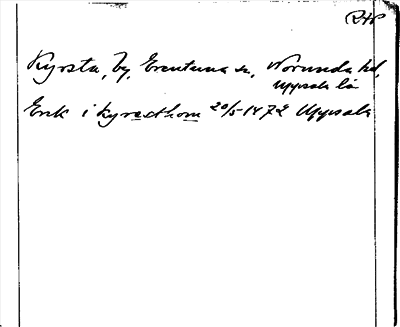 RAP
Kyrsta, by, Erentuna sn, Norunda hd,
Uppsala lä
Erik i kyresthom 20/5 1472 Uppsala